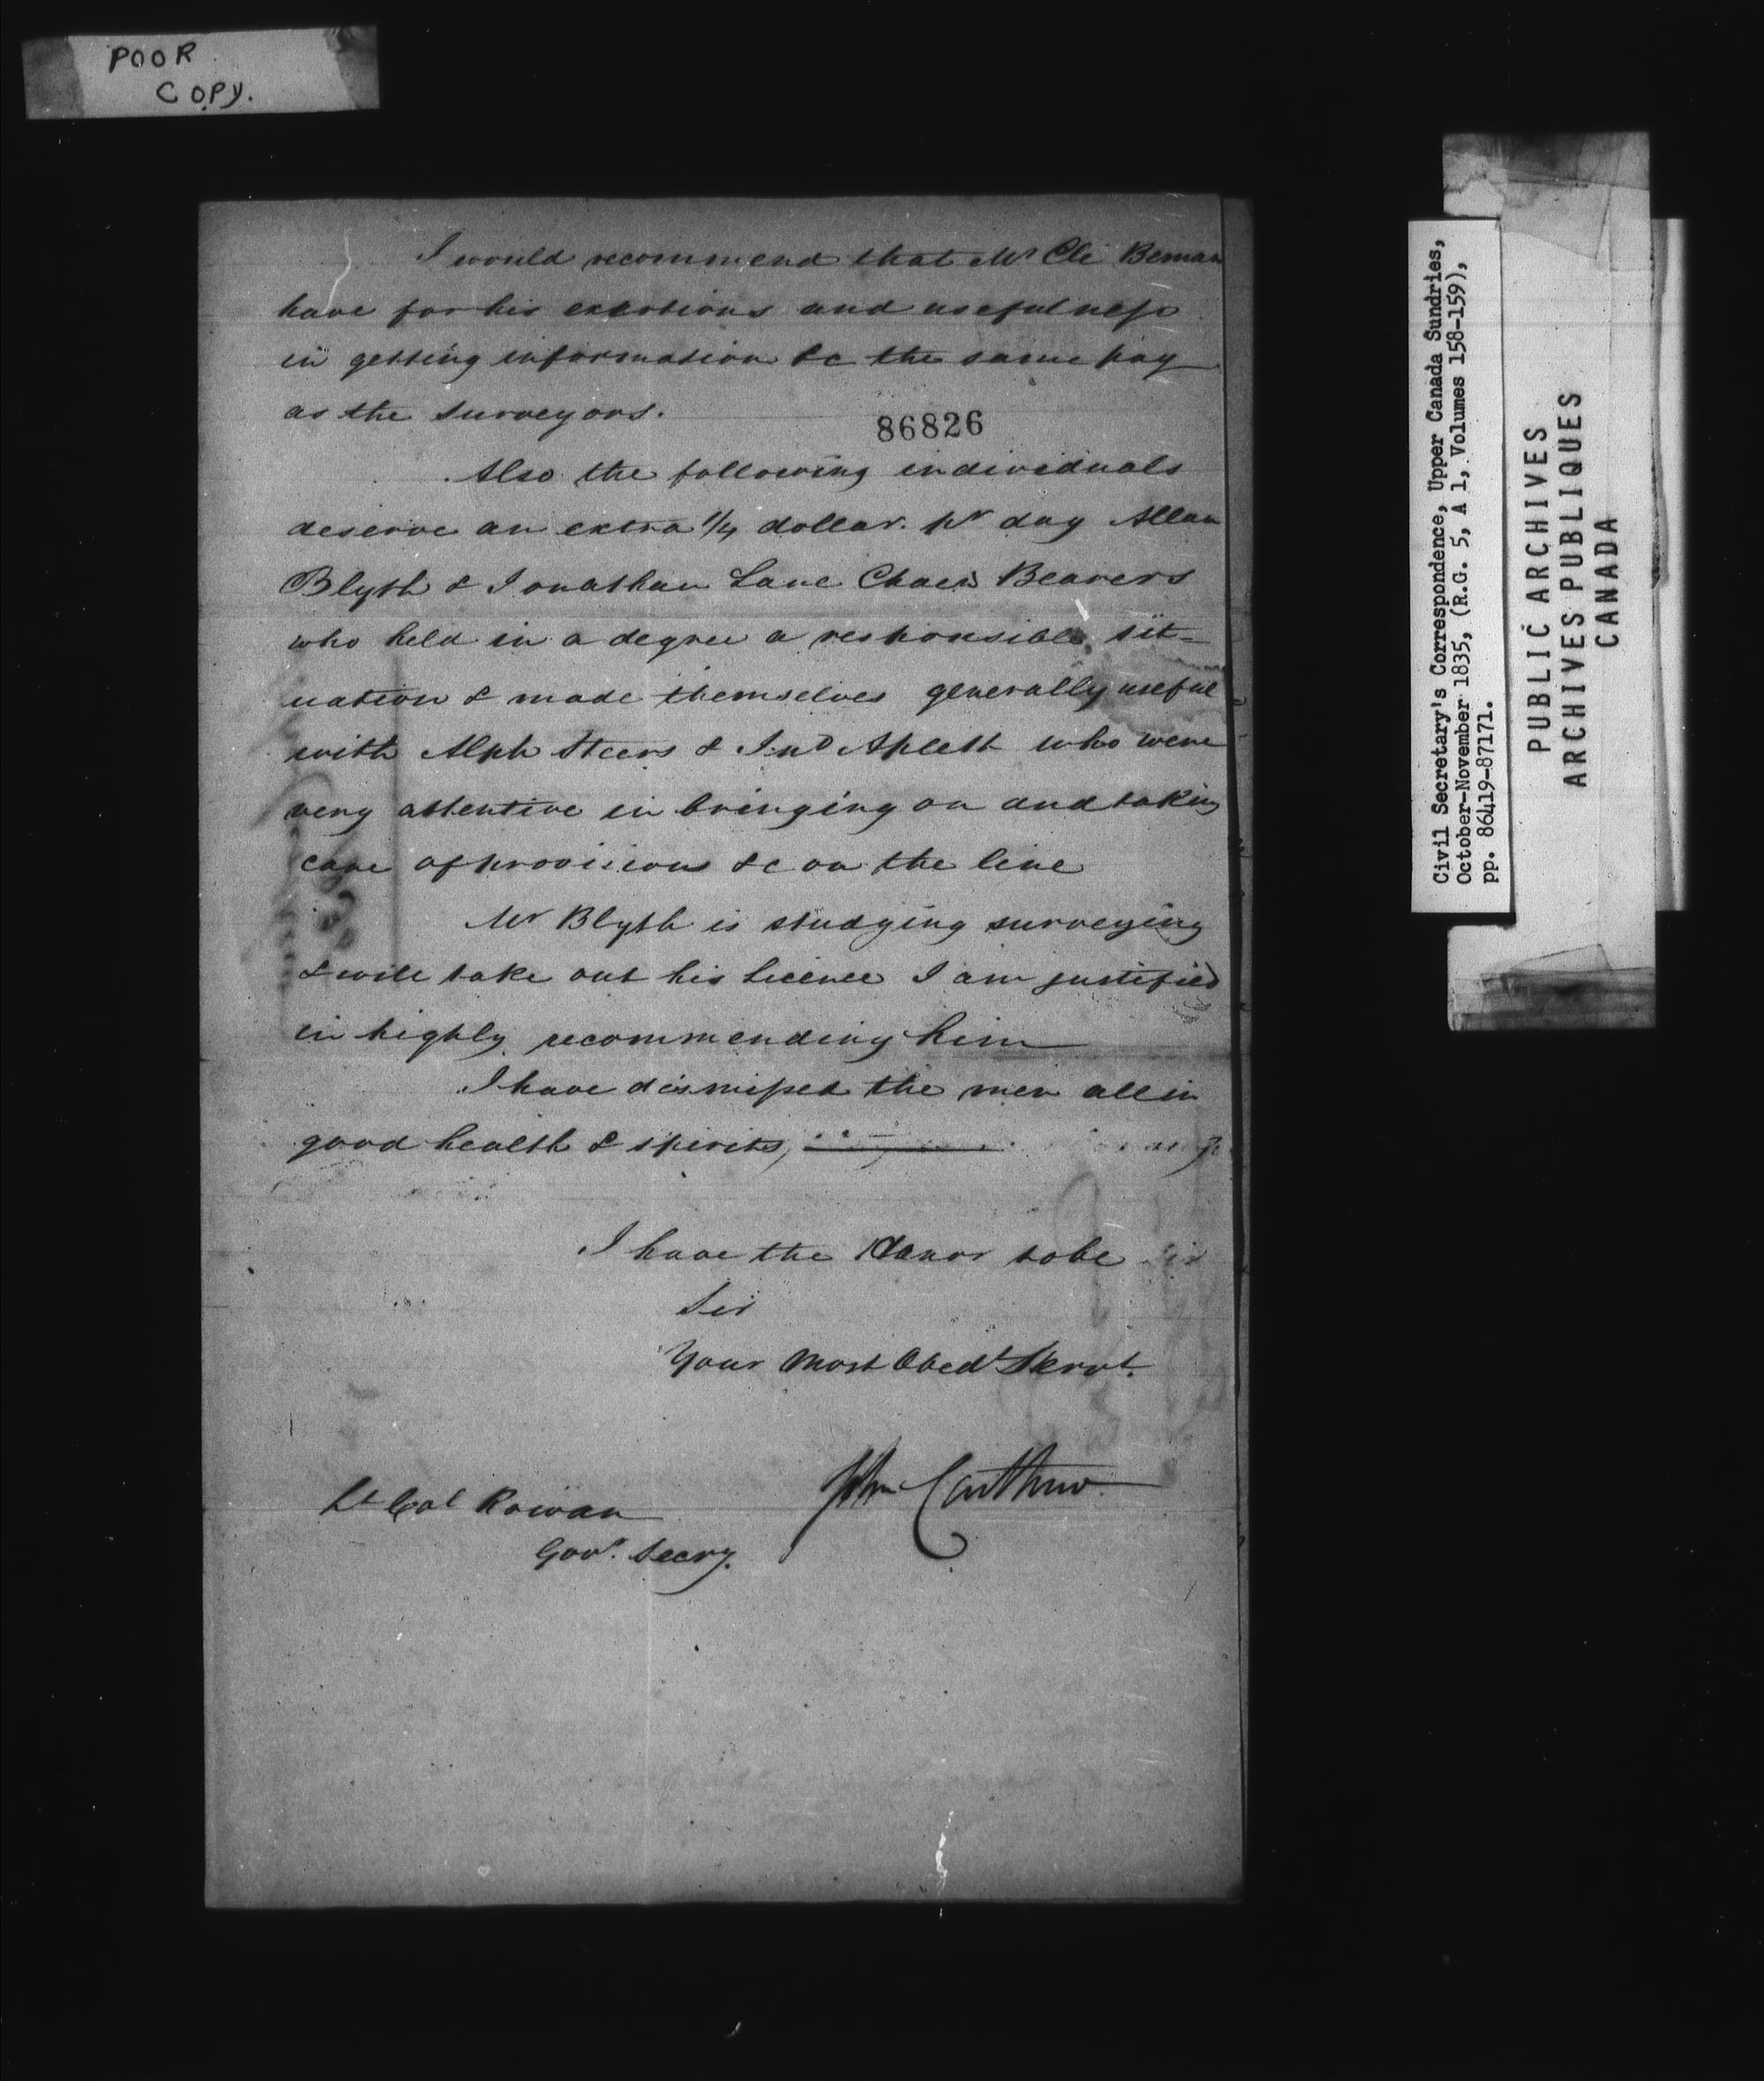 POOR
COPY.
I would recommend that Mr Eli Beman
have for his exertions and usefulness
in getting information &c the same pay
as the surveyors.
86826
Also the following individuals
deserve an extra 1/4 dollar pr day Allan
Blyth & Jonathan Lane Chain Bearers
who held in a degree a responsible sit-
uation & made themselves generally useful
with Alph Steers & Jno Aplett who were
very attentive in bringing on and taking
care of provisions &c on the line
Mr Blyth is studying surveying
& will take out his licence I am justified
in highly recommending him
I have dismissed the men all in
good health & spirits,
I have the Honor to be
Sir
Your Most Obedt Servt.
John Carthew
Lt Col Rowan
Govr. Secry.
Civil Secretary's Correspondence, Upper Canada Sundries,
October-November 1835, (R.G. 5, A 1, Volumes 158-159),
pp. 86419-87171.
PUBLIC ARCHIVES
ARCHIVES PUBLIQUES
CANADA